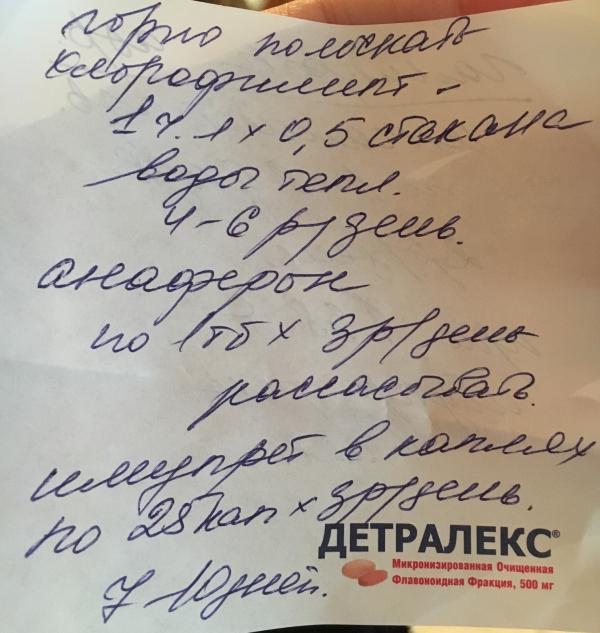 горло полоскать
хлорофиллипт -
1 ч.л х 0,5 стакана
воды тепл.
4-6 р/день.
анаферон
по 1тб х 3р/день
рассасывать.
имупрет в каплях
по 25 кап х 3р/день.
7-10дней.
ДЕТРАЛЕКС®
Микронизированная Очищенная
Флавоноидная Фракция, 500 мг